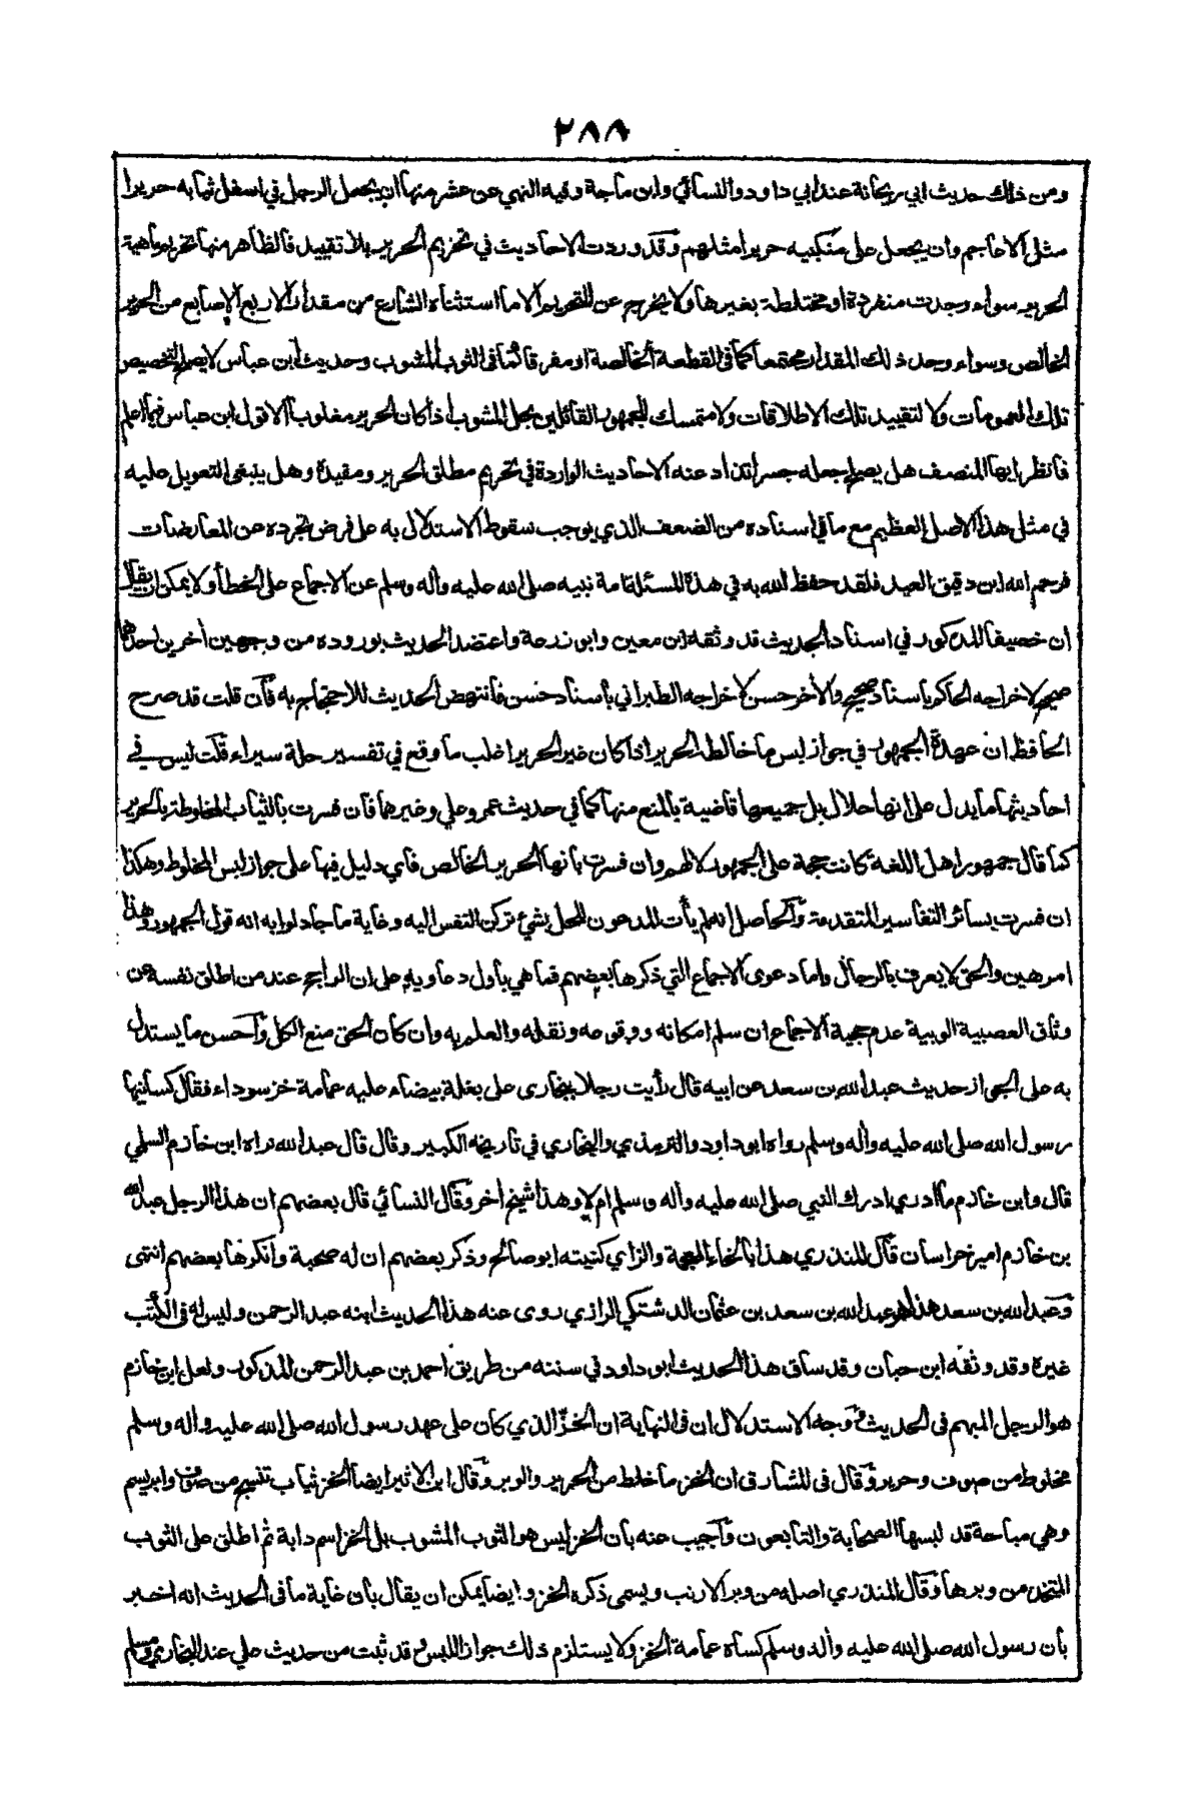 ٢٨٨
ومن ذلك حديث ابي ريحانة عند ابي داود والنسائي وابن ماجة وفيه النهي عن عشر منها ان يجعل الرجل في اسفل ثيابه حريرا
مثل الاعاجم وان يجعل على منكبيه حريرا مثلهم وقد وردت الاحاديث في تحريم الحرير بلا تقييد فالظاهر منها تحريم ماهية
الحرير سواء وجدت منفردة او مختلطة بغيرها ولا يخرج عن التحريم الا ما استثناه الشارع من مقدار الاربع الاصابع من الحرير
الخالص وسواء وجد ذلك المقدار مجتمعا كما في القطعة الخالصة او مفرقا كما في الثوب المشوب وحديث ابن عباس لا يصلح لتخصيص
تلك العمومات ولا لتقييد تلك الاطلاقات ولا متمسك للجمهور القائلين بحل المشوب اذا كان الحرير مغلوبا الا قول ابن عباس فيما اعلم
فانظر ايها المنصف هل يصلح جعله جسرا تذاد عنه الاحاديث الواردة في تحريم مطلق الحرير ومقيده وهل ينبغي التعويل عليه
في مثل هذا الاصل العظيم مع ما في اسناده من الضعف الذي يوجب سقوط الاستدلال به على فرض تجرده عن المعارضات
فرحم الله ابن دقيق العيد فلقد حفظ الله به في هذه المسئلة امة نبيه صلى الله عليه وآله وسلم عن الاجماع على الخطأ ولا يمكن ان يقال
ان خصيفا المذكور في اسناد الحديث قد وثقه ابن معين وابو زرعة واعتضد الحديث بوروده من وجهين آخرين احدهما
صحيح لاخراجه الحاكم باسناد صحيح والآخر حسن لاخراجه الطبراني باسناد حسن فانتهض الحديث للاحتجاج به فان قلت قد صرح
الحافظ ان عهدة الجمهور في جواز لبس ما خالطه الحرير اذا كان غير الحرير اغلب ما وقع في تفسير حلة سيراء قلت ليس في
احاديثها ما يدل على انها حلال بل جميعها قاضية بالمنع منها كما في حديث عمر وعلي وغيرهما فان فسرت بالثياب المخلوطة بالحرير
كما قال جمهور اهل اللغة كانت حجة على الجمهور لا لهم وان فسرت بانها الحرير الخالص فاي دليل فيها على جواز لبس المخلوط وهكذا
ان فسرت بسائر التفاسير المتقدمة والحاصل انه لم يأت المدعون للحل بشيء تركن النفس اليه وغاية ما جادلوا به انه قول الجمهور وهذا
امر هين والحق لا يعرف بالرجال واما دعوى الاجماع التي ذكرها بعضهم فما هي باول دعاويه على ان الراجح عند من اطلق نفسه عن
وثاق العصبية الوبية عدم حجية الاجماع ان سلم امكانه ووقوعه ونقله والعلم به وان كان الحق منع الكل واحسن ما يستدل
به على الجواز حديث عبد الله بن سعد عن ابيه قال رأيت رجلا ببخارى على بغلة بيضاء عليه عمامة خز سوداء فقال كسانيها
رسول الله صلى الله عليه وآله وسلم رواه ابو داود والترمذي والبخاري في تاريخه الكبير وقال قال عبد الله نراه ابن خازم السلمي
قال وابن خازم ما ادري ادرك النبي صلى الله عليه وآله وسلم ام لا وهذا شيخ آخر وقال النسائي قال بعضهم ان هذا الرجل عبد الله
بن خازم امير خراسان قال المنذري هذا بالخاء المعجمة والزاي كنيته ابو صالح وذكر بعضهم ان له صحبة وانكرها بعضهم انتهى
وعبد الله بن سعد هذا هو عبد الله بن سعد بن عثمان الدشتكي الرازي روى عنه هذا الحديث ابنه عبد الرحمن وليس له في الكتب
غيره وقد وثقه ابن حبان وقد ساق هذا الحديث ابو داود في سننه من طريق احمد بن عبد الرحمن المذكور ولعل ابن خازم
هو الرجل المبهم في الحديث ووجه الاستدلال ان في النهاية ان الخز الذي كان على عهد رسول الله صلى الله عليه وآله وسلم
مخلوط من صوف وحرير وقال في المشارق ان الخز ما خلط من الحرير والوبر وقال ابن الاثير ايضا الخز ثياب تنسج من صوف وابريسم
وهي مباحة قد لبسها الصحابة والتابعون واجيب عنه بان الخز ليس هو الثوب المشوب بل الخز اسم دابة ثم اطلق على الثوب
المتخذ من وبرها وقال المنذري اصله من وبر الارنب ويسمى ذكره الخز وايضا يمكن ان يقال بان غاية ما في الحديث انه اخبر
بان رسول الله صلى الله عليه وآله وسلم كساه عمامة الخز ولا يستلزم ذلك جواز اللبس وقد ثبت من حديث علي عند البخاري ومسلم